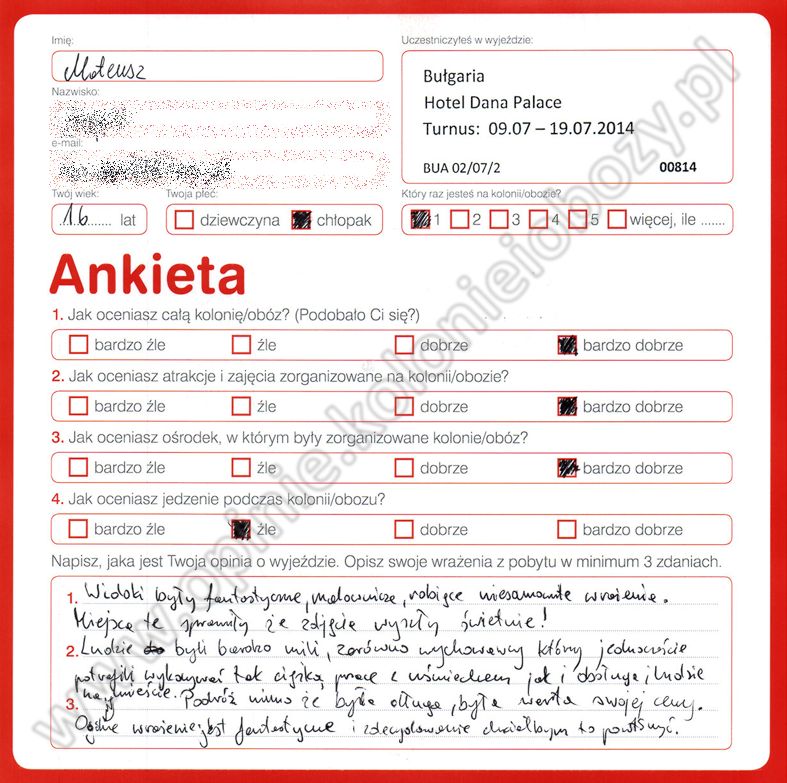 Imię:
Mateusz
Uczestniczyłeś w wyjeździe:
Bułgaria
Hotel Dana Palace
Turnus: 09.07 – 19.07.2014
BUA 02/07/2 00814
Nazwisko:
e-mail:
Twój wiek: Twoja płeć: Który raz jesteś na kolonii/obozie?
16 lat dziewczyna chłopak 1 2 3 4 5 więcej, ile .......
Ankieta
1. Jak oceniasz całą kolonię/obóz? (Podobało Ci się?)
bardzo źle źle dobrze bardzo dobrze
2. Jak oceniasz atrakcje i zajęcia zorganizowane na kolonii/obozie?
bardzo źle źle dobrze bardzo dobrze
3. Jak oceniasz ośrodek, w którym były zorganizowane kolonie/obóz?
bardzo źle źle dobrze bardzo dobrze
4. Jak oceniasz jedzenie podczas kolonii/obozu?
bardzo źle źle dobrze bardzo dobrze
Napisz, jaka jest Twoja opinia o wyjeździe. Opisz swoje wrażenia z pobytu w minimum 3 zdaniach.
1. Widoki były fantastyczne, malownicze, robiące niesamowite wrażenie.
Miejsca te sprawiły że zdjęcia wyszły świetnie!
2. Ludzie byli bardzo mili, zarówno wychowawcy który jednoczeście
potrafili wykonywać tak ciężką pracę z uśmiechem jak i obsługa i ludzie
na mieście. Podróż mimo że była długa, była warta swojej ceny.
3.
Ogólne wrażenie jest fantastyczne i zdecydowanie chciałbym to powtórzyć.
www.opinie.kolonieiobozy.pl